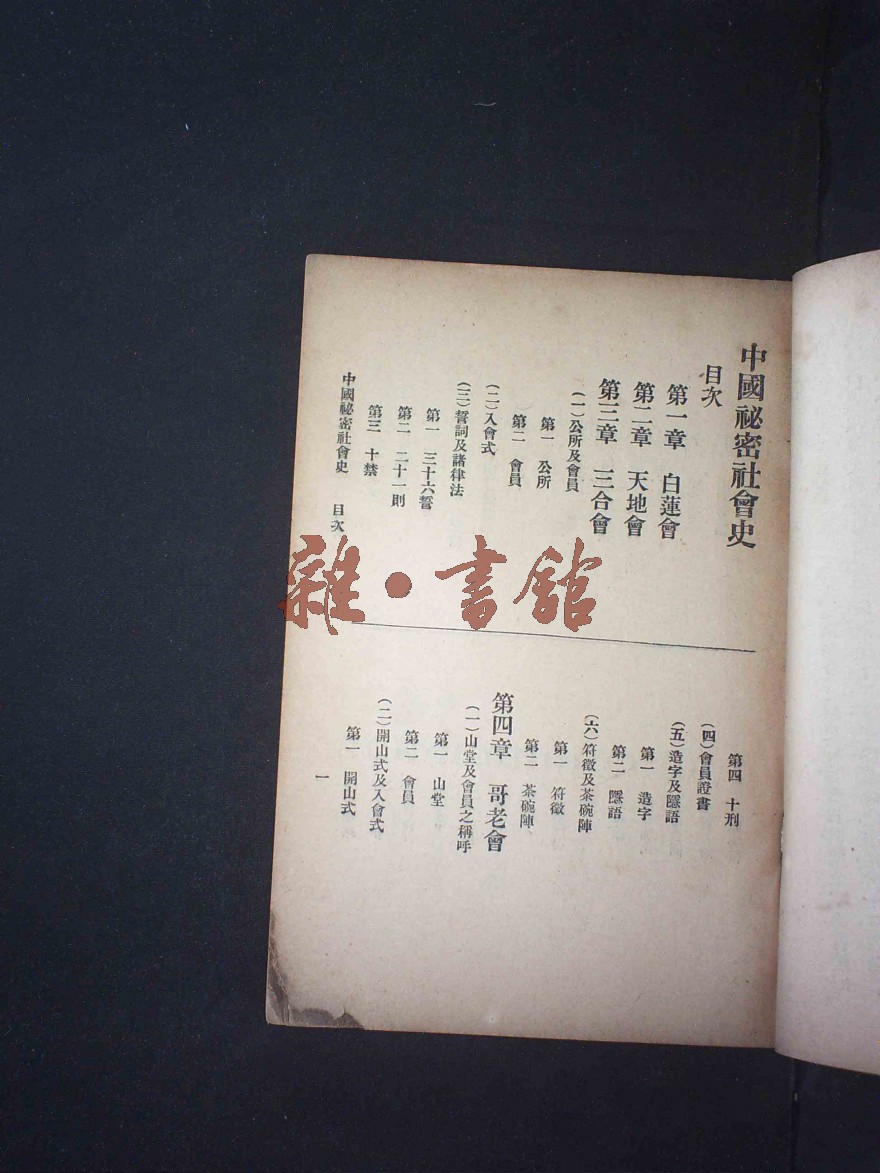 中國祕密社會史
目次
第一章　白蓮會
第二章　天地會
第三章　三合會
(一)公所及會員
第一　公所
第二　會員
(二)入會式
(三)誓詞及諸律法
第一　三十六誓
第二　二十一則
第三　十禁
中國祕密社會史　目次
第四　十刑
(四)會員證書
(五)造字及隱語
第一　造字
第二　隱語
(六)符徵及茶碗陣
第一　符徵
第二　茶碗陣
第四章　哥老會
(一)山堂及會員之稱呼
第一　山堂
第二　會員
(二)開山式及入會式
第一　開山式
一
雜·書館